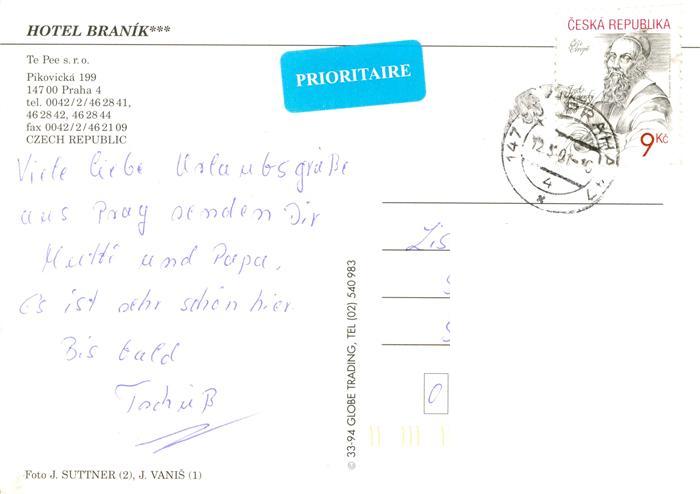 HOTEL BRANÍK***
Te Pee s.r.o.
Pikovická 199
147 00 Praha 4
tel. 0042/2/46 28 41,
46 28 42, 46 28 44
fax 0042/2/46 21 09
CZECH REPUBLIC
PRIORITAIRE
ČESKÁ REPUBLIKA
9 Kč
147 00 PRAHA 47
4
Viele liebe Urlaubsgrüße
aus Prag senden Dir
Mutti und Papa.
Es ist sehr schön hier.
Bis bald
Tschüß
Lis
S
S
0
© 33-94 GLOBE TRADING, TEL (02) 540 983
Foto J. SUTTNER (2), J. VANIŠ (1)